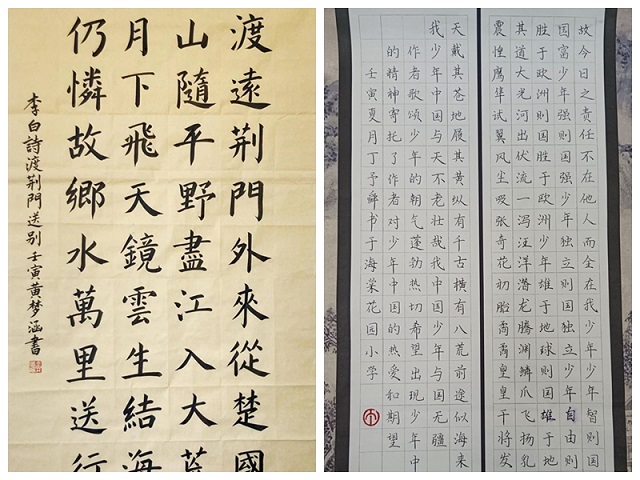 渡遠荆門外來從楚國
山隨平野盡江入大荒
月下飛天鏡雲生結海
仍憐故鄉水萬里送行
李白詩渡荆門送别壬寅黄梦涵書
故今日之责任不在他人而全在我少年少年智则国
国富少年强则国强少年独立则国独立少年自由则国
胜于欧洲则国胜于欧洲少年雄于地球则国雄于地
其道大光河出伏流一泻汪洋潜龙腾渊鳞爪飞扬乳
震惶鹰隼试翼风尘吸张奇花初胎矞矞皇皇干将发
天戴其苍地履其黄纵有千古横有八荒前途似海来
我少年中国与天不老壮哉我中国少年与国无疆
作者歌颂少年的朝气蓬勃热切希望出现少年中
的精神寄托了作者对少年中国的热爱和期望
壬寅夏月丁予舜书于海棠花园小学